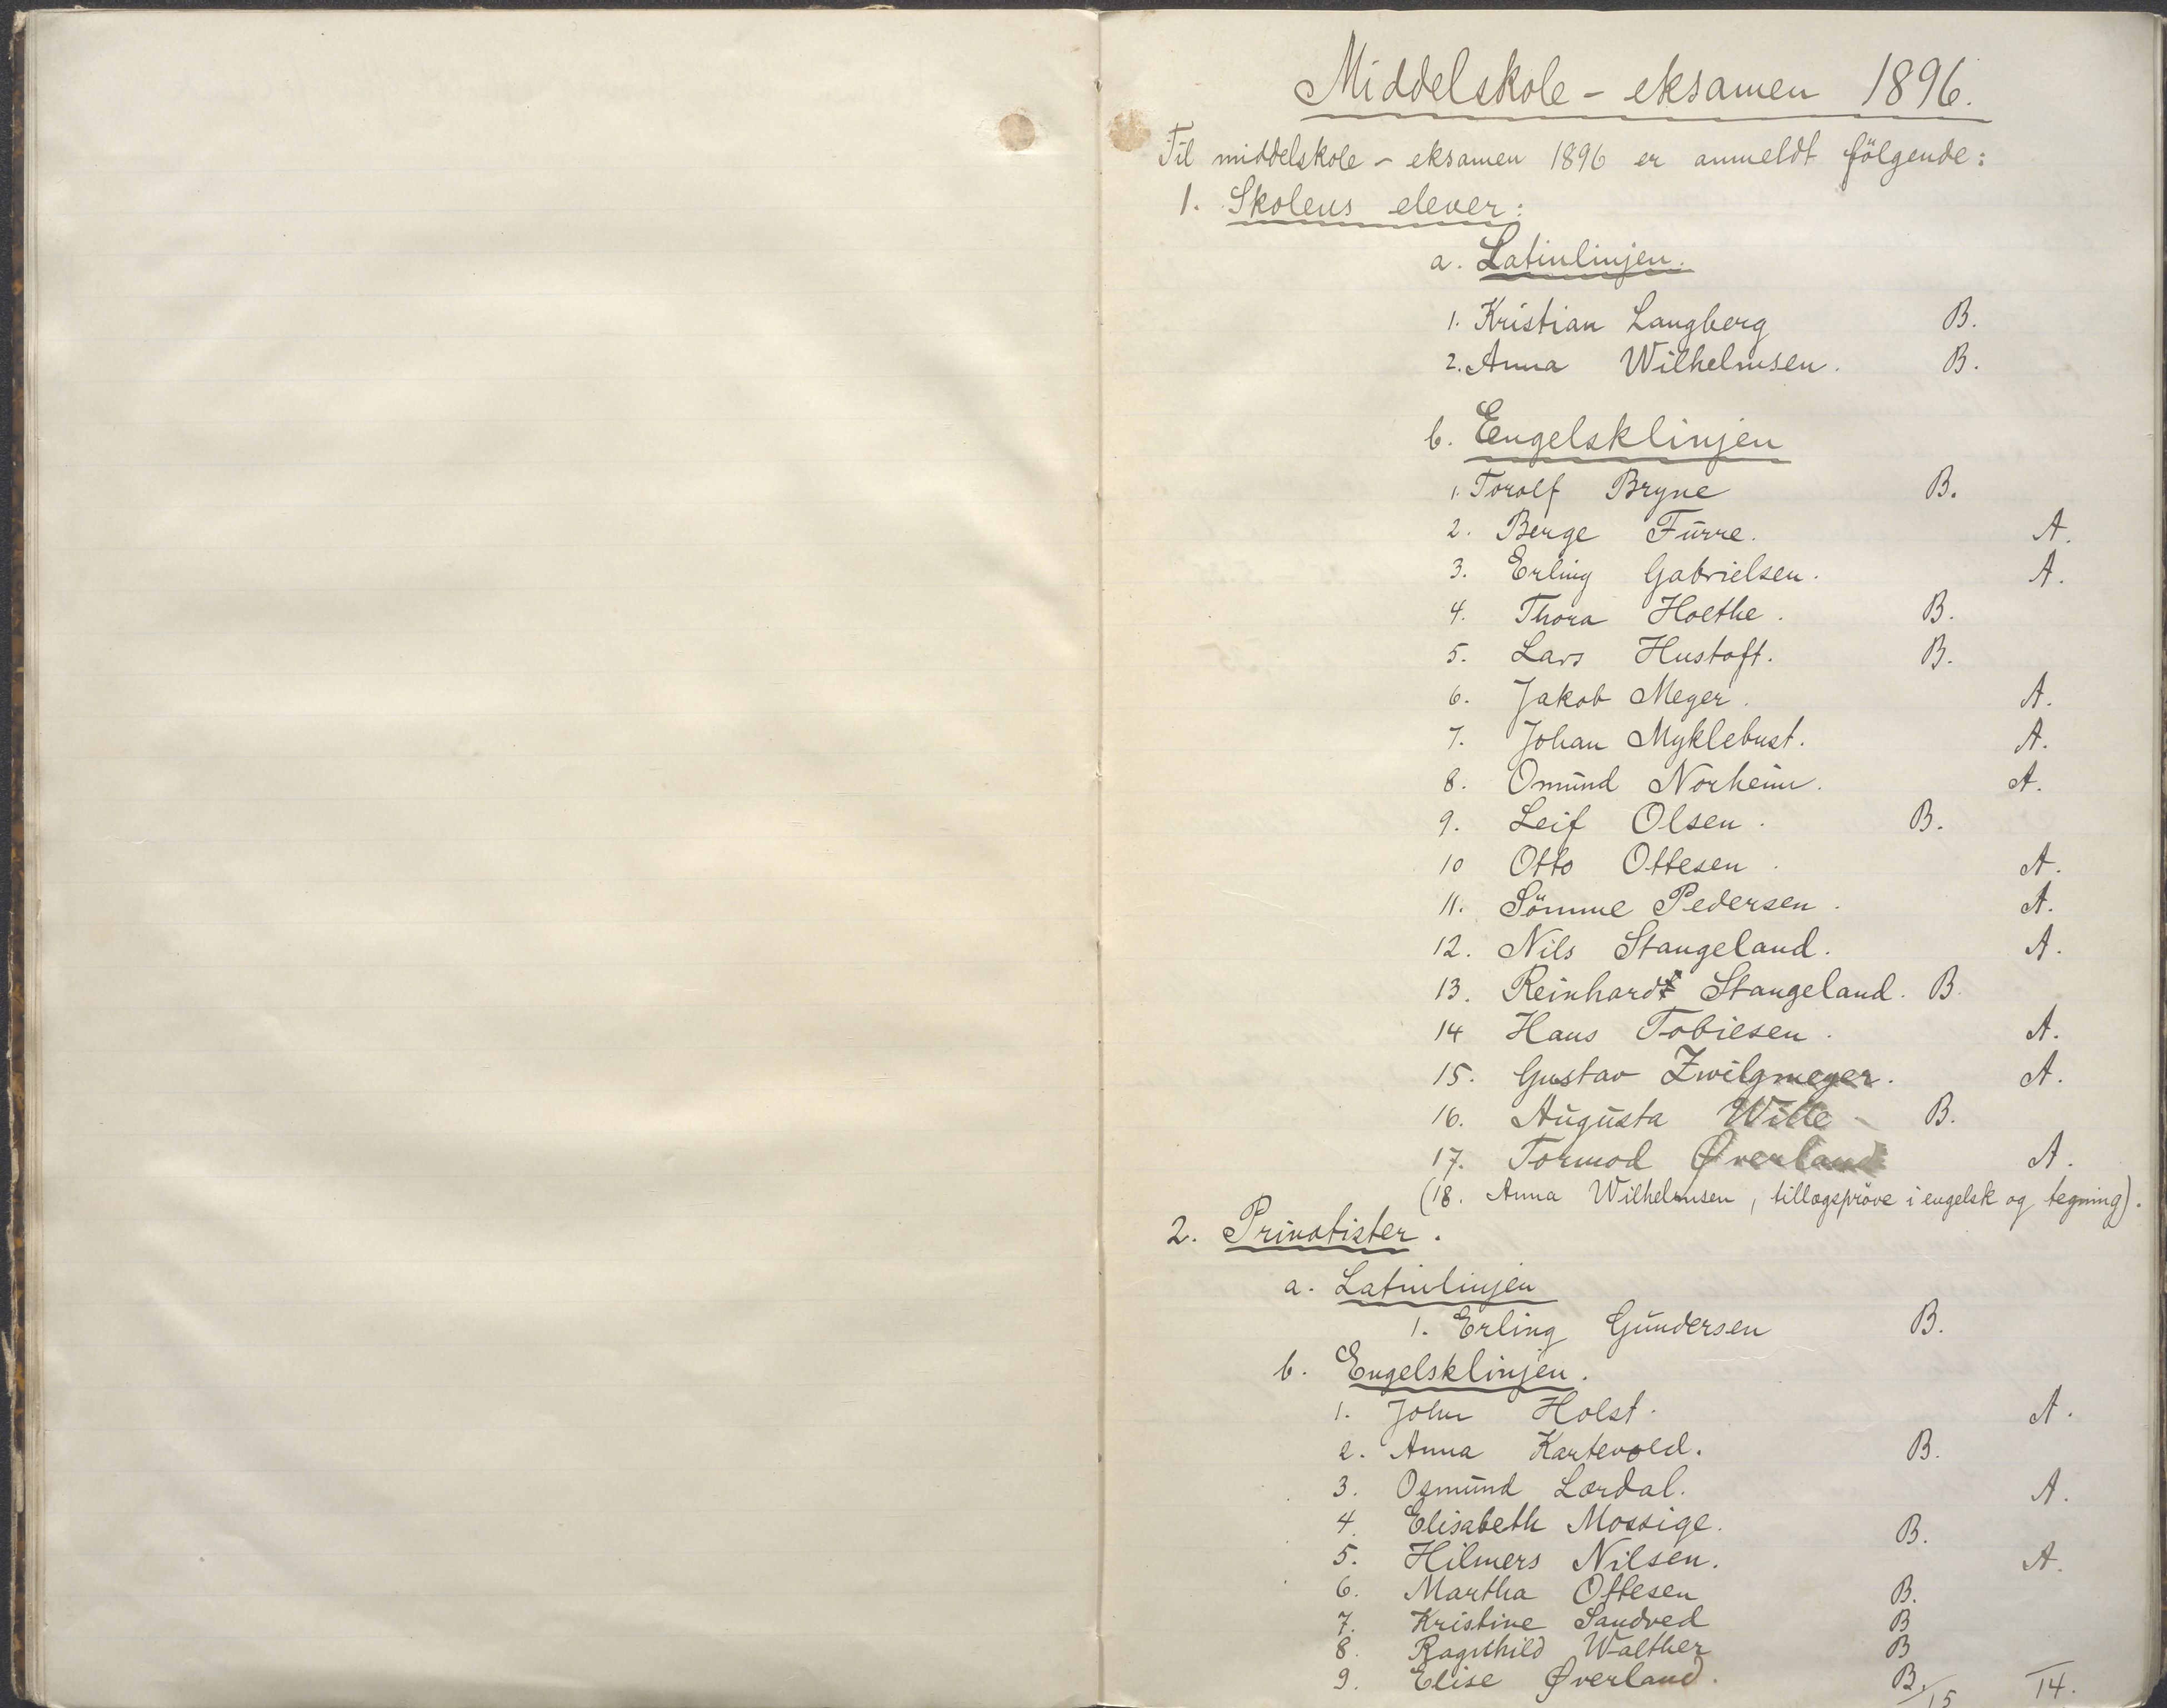 Middelskole - eksamen 1896.
Til middelskole - eksamen 1896 er anmeldt fölgende:
1. Skolens elever:
a. Latinlinjen.
1. Kristian Langberg B.
2. Anna Wilhelmsen. B.
b. Engelsklinjen
1. Torolf Bryne B.
2. Berge Furre. A.
3. Erling Gabrielsen. A.
4. Thora Hoethe. B.
5. Lars Hustoft. B.
6. Jakob Meger. A.
7. Johan Myklebust. A.
8. Omund Norheim. A.
9. Leif Olsen. B.
10 Otto Ottesen. A.
11. Sömme Pedersen. A.
12. Nils Stangeland. A.
13. Reinhardt Stangeland. B.
14 Hans Tobiesen. A.
15. Gustav Zwilgmeyer. A.
16. Augusta Wille B.
17. Tormod Øverland A.
(18. Anna Wilhelmsen, tillægspröve i engelsk og tegning).
2. Privatister.
a. Latinlinjen
1. Erling Gundersen B.
b. Engelsklinjen.
1. John Holst. A.
2. Anna Kartevold. B.
3. Osmund Lærdal. A.
4. Elisabeth Mossige. B.
5. Hilmers Nilsen. A.
6. Martha Ottesen B.
7. Kristine Sandved B
8. Ragnhild Walther B
9. Elise Øverland. B.
15 14.